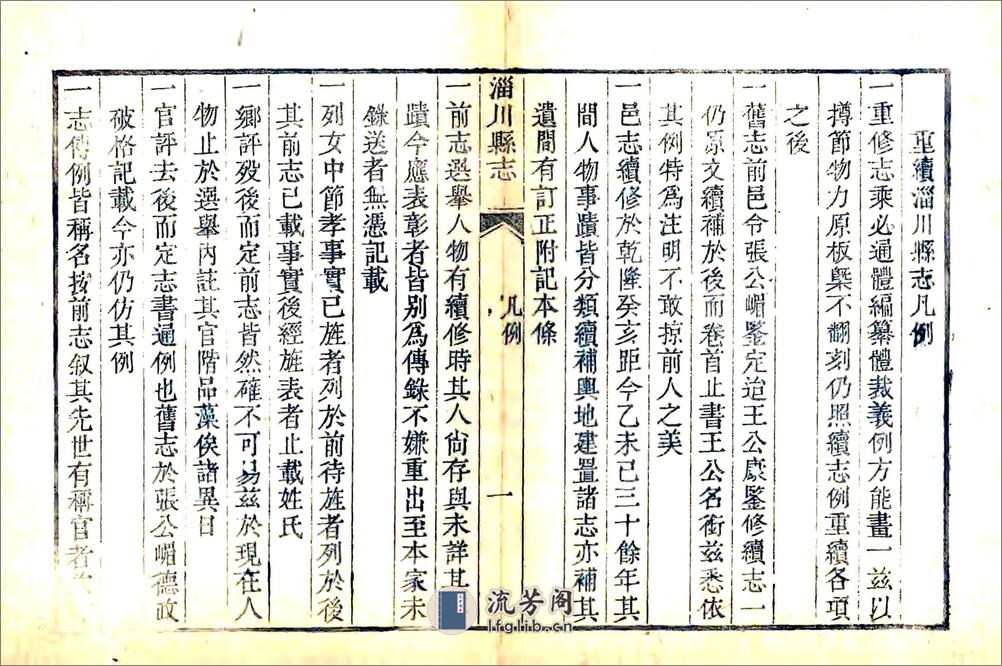 重續淄川縣志凡例
一重修志乘必通體編纂體裁義例方能畫一兹以
撙節物力原板槩不翻刻仍照續志例重續各項
之後
一舊志前邑令張公嵋鑒定迨王公康鑒修續志一
仍原文續補於後而卷首止書王公名銜兹悉依
其例特爲注明不敢掠前人之美
一邑志續修於乾隆癸亥距今乙未已三十餘年其
間人物事蹟皆分類續補輿地建置諸志亦補其
遺間有訂正附記本條
淄川縣志
凡例
一
一前志選舉人物有續修時其人尙存與未詳其
蹟今應表彰者皆别爲傳錄不嫌重出至本家未
錄送者無憑記載
一列女中節孝事實已旌者列於前待旌者列於後
其前志已載事實後經旌表者止載姓氏
一鄉評殁後而定前志皆然確不可易兹於現在人
物止於選舉內註其官階品藻俟諸異日
一官評去後而定志書通例也舊志於張公嵋德政
破格記載今亦仍仿其例
一志傳例皆稱名按前志叙其先世有稱官者
流芳阁
lfglib.cn